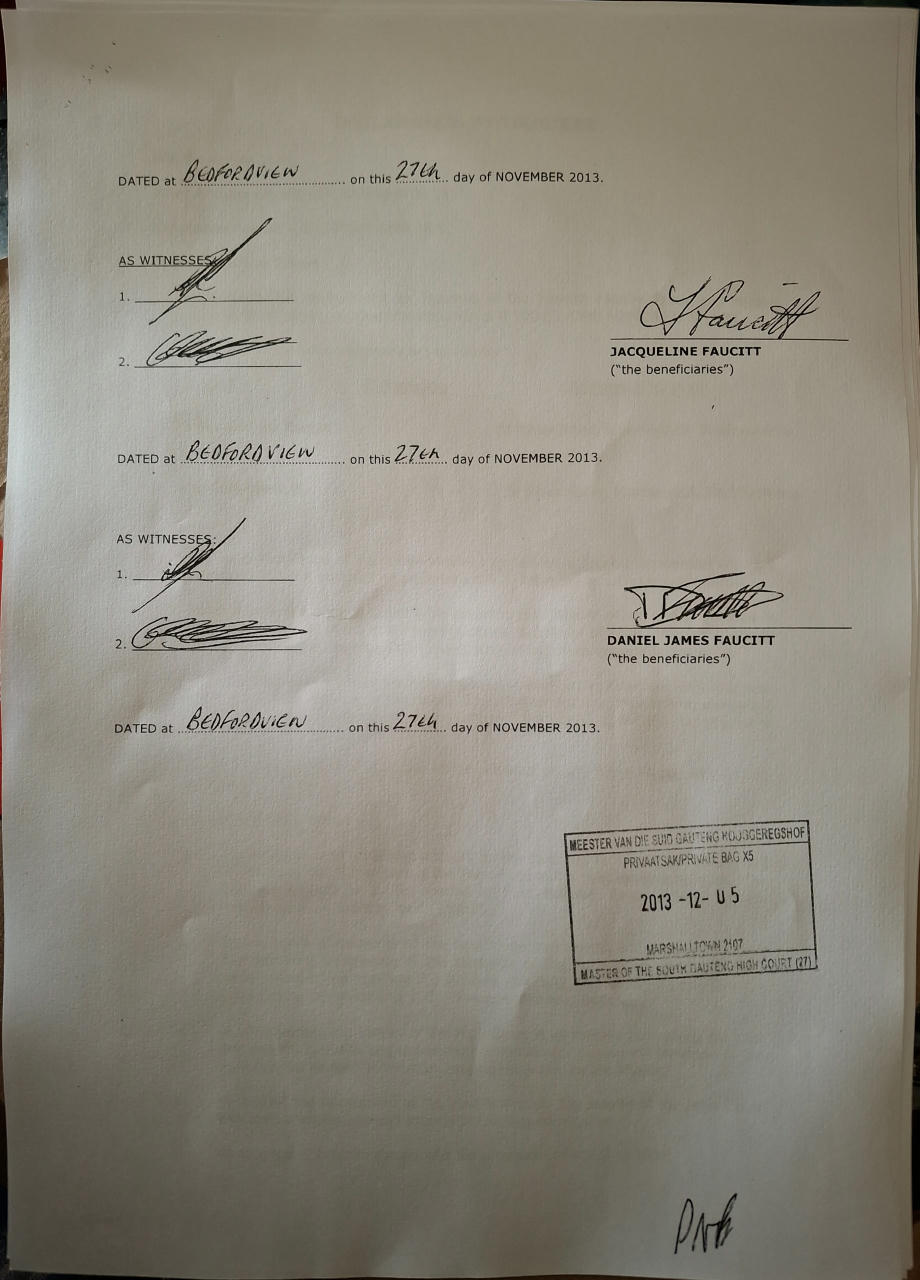 DATED at BEDFORDVIEW on this 27th day of NOVEMBER 2013.
AS WITNESSES:
1.
J Faucitt
JACQUELINE FAUCITT
2.
("the beneficiaries")
DATED at BEDFORDVIEW on this 27th day of NOVEMBER 2013.
AS WITNESSES:
1.
DANIEL JAMES FAUCITT
2.
("the beneficiaries")
DATED at BEDFORDVIEW on this 27th day of NOVEMBER 2013.
MEESTER VAN DIE SUID GAUTENG HOOGGEREGSHOF
PRIVAATSAK/PRIVATE BAG X5
2013 -12- 05
MARSHALLTOWN 2107
MASTER OF THE SOUTH GAUTENG HIGH COURT (27)